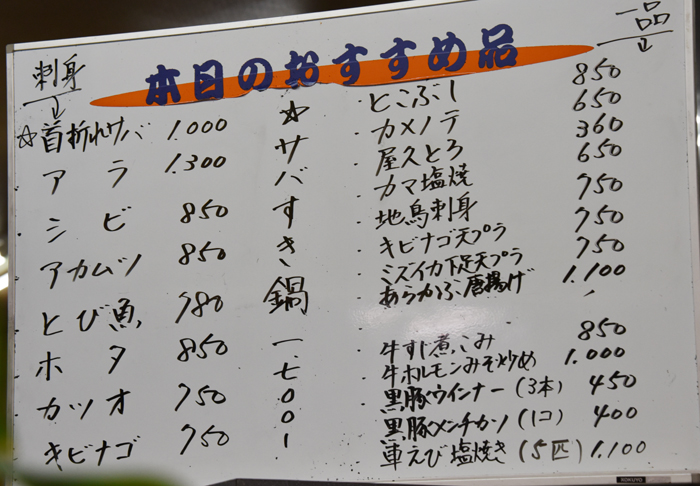 本日のおすすめ品
刺身
↓
☆首折れサバ 1.000
アラ 1.300
シビ 850
アカムツ 850
とび魚 980
ホタ 850
カツオ 750
キビナゴ 750
☆サバすき鍋 一.七〇〇ー
一品
↓
・とこぶし 850
・カメノテ 650
・屋久とろ 360
・カマ塩焼 650
・地鳥刺身 950
・キビナゴ天プラ 750
・ミズイカ下足天プラ 750
・あらかぶ唐揚げ 1.100
・牛すじ煮こみ 850
・牛ホルモンみそ炒め 1.000
・黒豚ウインナー(3本) 450
・黒豚メンチカツ(1コ) 400
・車えび塩焼き(5匹) 1.100